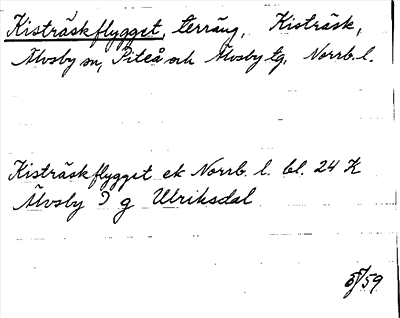 Kisträskflygget, terräng, Kisträsk,
Älvsby sn, Piteå och Älvsby tg, Norrb. l.
Kisträskflygget ek Norrb. l. bl. 24 K
Älvsby 9 g Ulriksdal
59